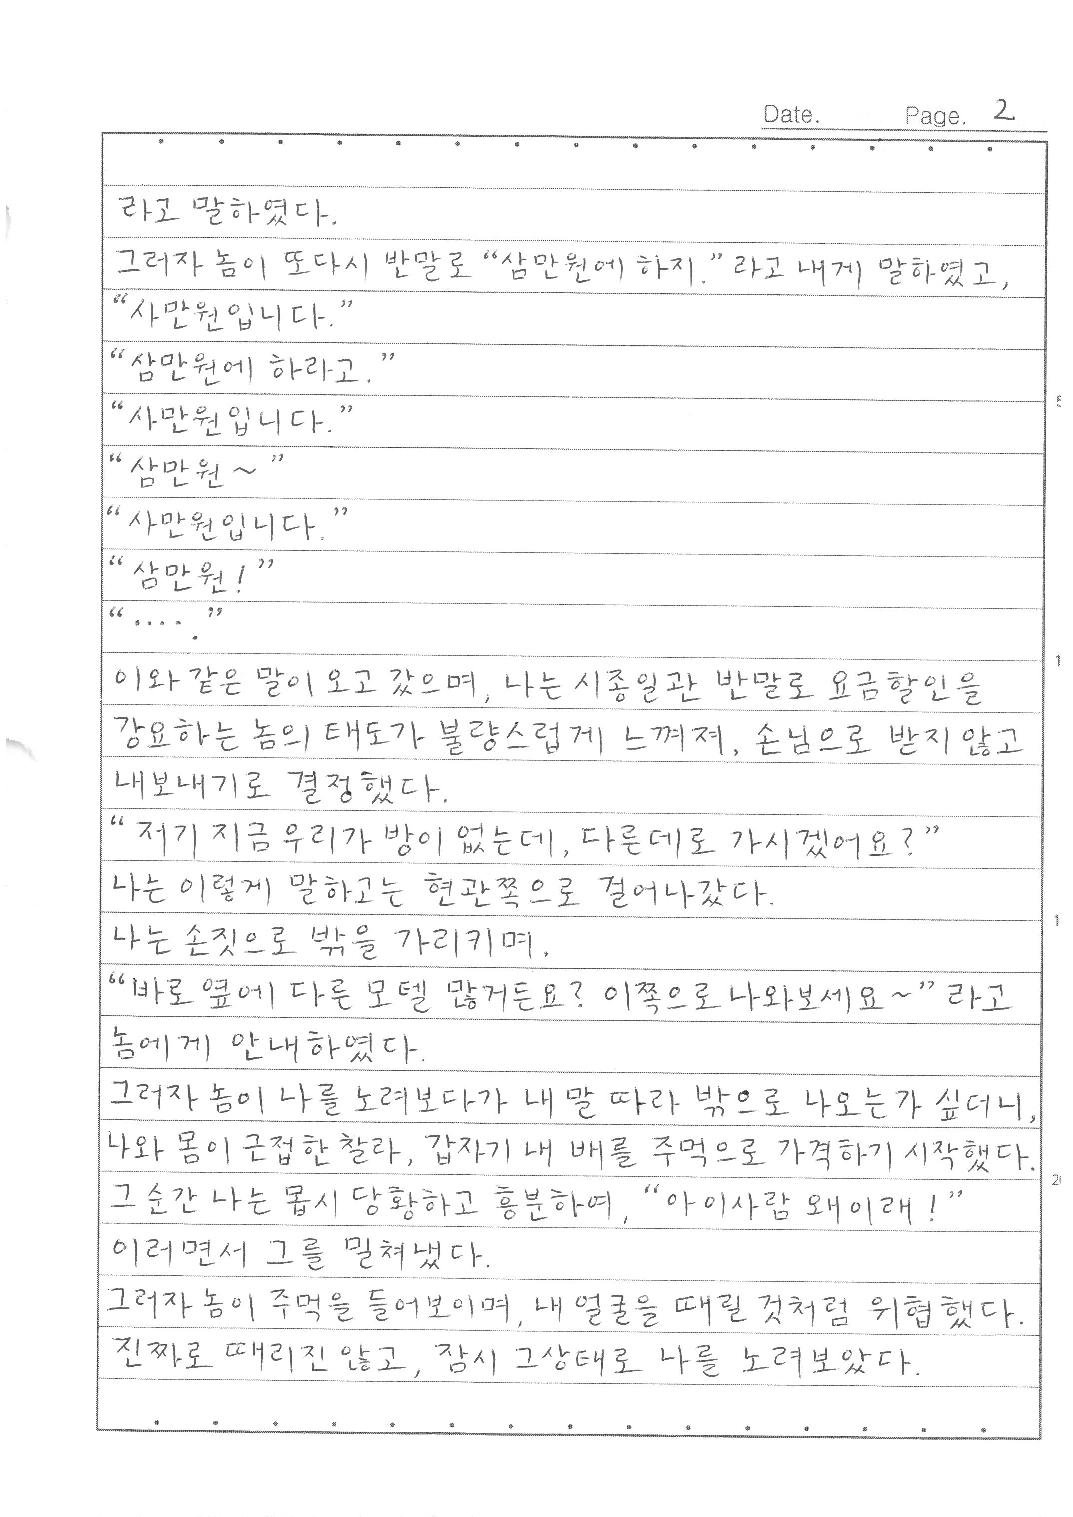 Date. Page. 2
라고 말하였다.
그러자 놈이 또다시 반말로 “삼만원에 하지.” 라고 내게 말하였고,
“사만원입니다.”
“삼만원에 하라고.”
“사만원입니다.”
“삼만원~”
“사만원입니다.”
“삼만원!”
“‥‥.”
이와 같은 말이 오고 갔으며, 나는 시종일관 반말로 요금할인을
강요하는 놈의 태도가 불량스럽게 느껴져, 손님으로 받지 않고
내보내기로 결정했다.
“저기 지금 우리가 방이 없는데, 다른데로 가시겠어요?”
나는 이렇게 말하고는 현관쪽으로 걸어나갔다.
나는 손짓으로 밖을 가리키며,
“바로 옆에 다른 모텔 많거든요? 이쪽으로 나와보세요~” 라고
놈에게 안내하였다.
그러자 놈이 나를 노려보다가 내 말 따라 밖으로 나오는가 싶더니,
나와 몸이 근접한 찰라, 갑자기 내 배를 주먹으로 가격하기 시작했다.
그 순간 나는 몹시 당황하고 흥분하여, “아이사람 왜이래!”
이러면서 그를 밀쳐냈다.
그러자 놈이 주먹을 들어보이며, 내 얼굴을 때릴 것처럼 위협했다.
진짜로 때리진 않고, 잠시 그상태로 나를 노려보았다.